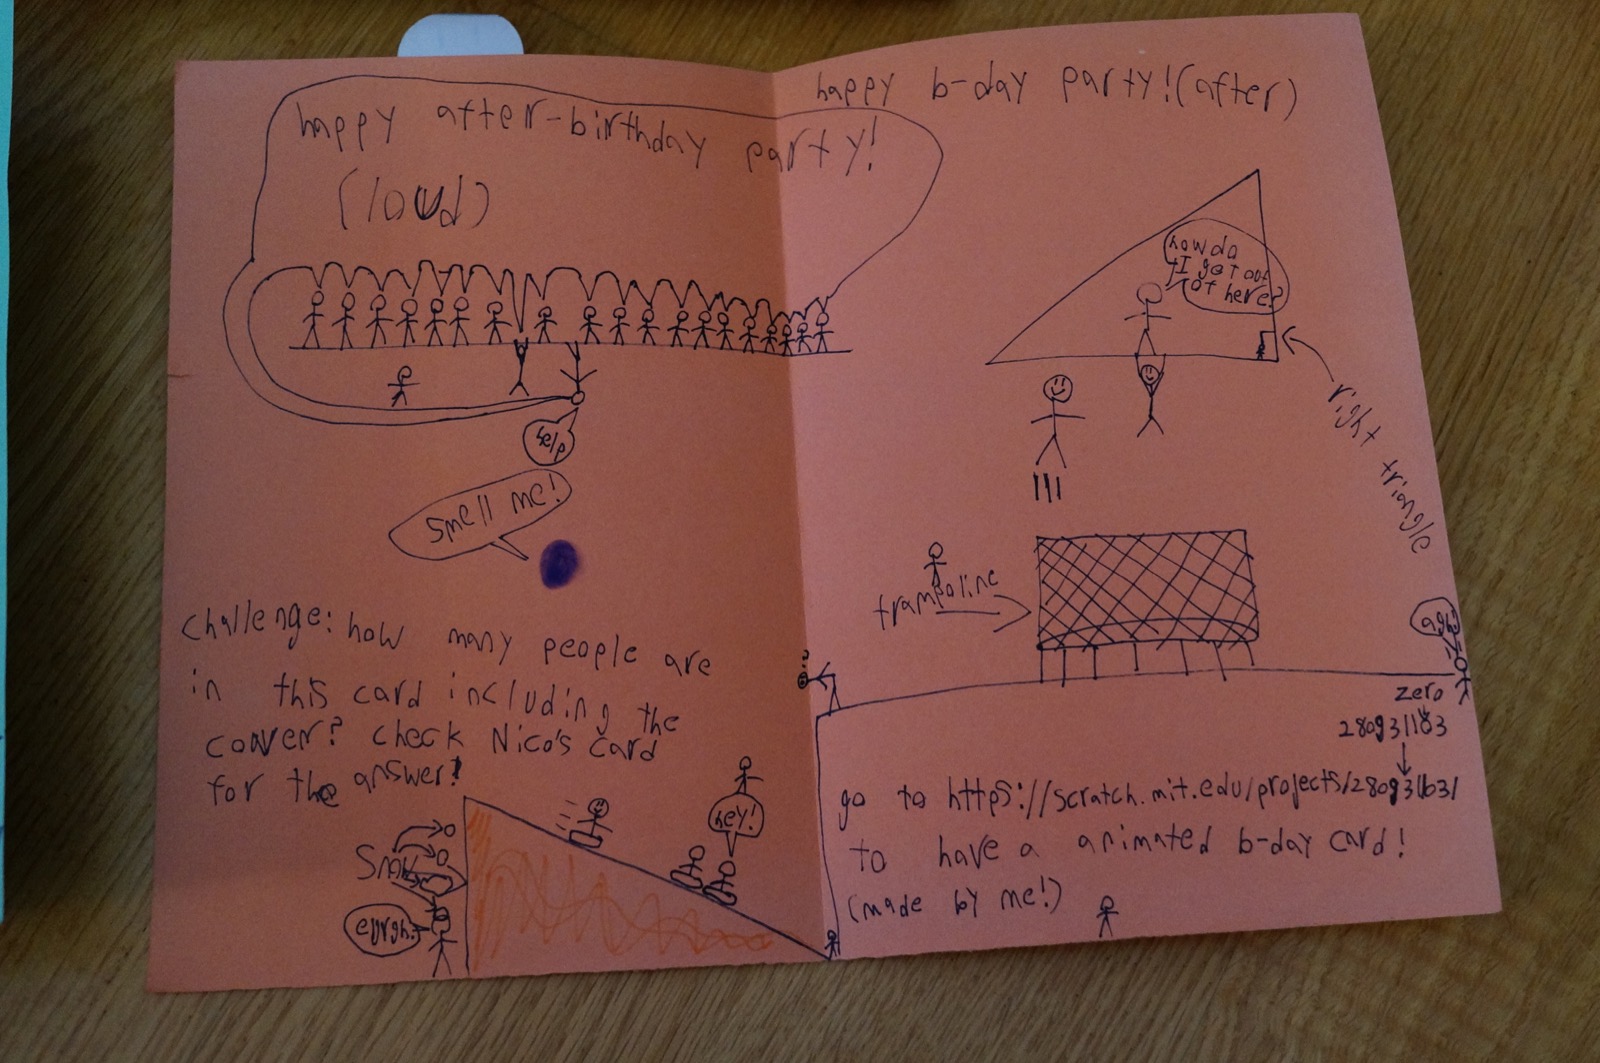 happy after-birthday party!
(loud)
help
smell me!
challenge: how many people are
in this card including the
cover? check Nico's card
for the answer!
hey!
happy b-day party! (after)
how do
I get out
of here?
right triangle
trampoline
agh
zero
go to https://scratch.mit.edu/projects/
to have a animated b-day card!
(made by me!)